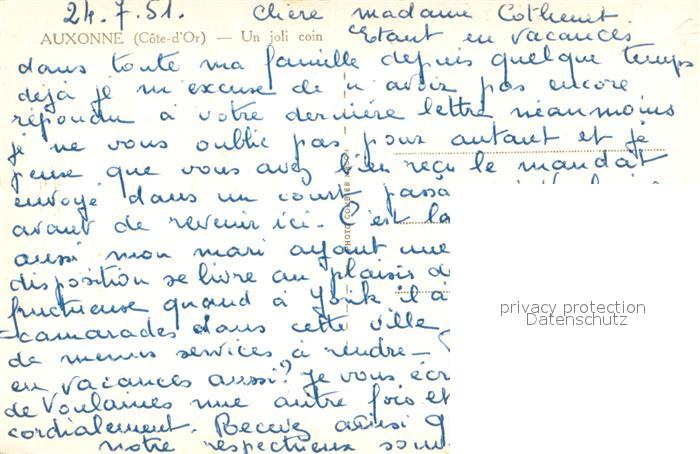 24.7.51. chère madame Cothenet.
AUXONNE (Côte-d'Or) — Un joli coin
Etant en vacances
dans toute ma famille depuis quelque temps
déjà je m'excuse de n'avoir pas encore
répondu à votre dernière lettre néanmoins
je ne vous oublie pas pour autant et je
pense que vous avez bien reçu le mandat
envoyé dans un court
avant de revenir ici. C'est la
aussi mon mari ayant une
disposition se livre au plaisir d
fructueuse quand à Yorik il a
camarades dans cette ville
de menus services à rendre_
en vacances aussi? je vous écr
de Voulaines une autre fois et
cordialement. Recevez ainsi
notre respectueux
PHOTO
privacy protection
Datenschutz